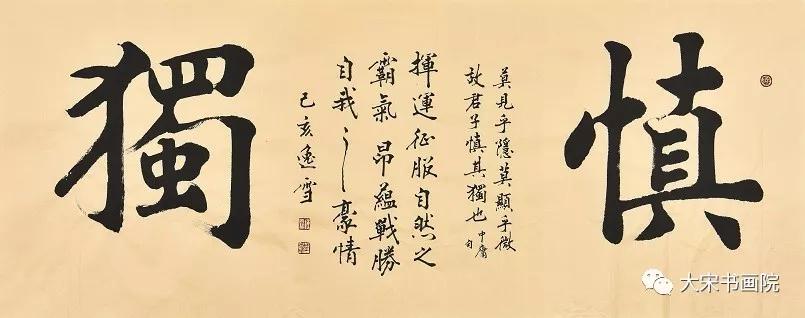 慎
莫見乎隱莫顯乎微
故君子慎其獨也 中庸句
揮運征服自然之
霸氣昂蘊戰勝
自我之豪情
己亥逸雪
獨
大宋书画院